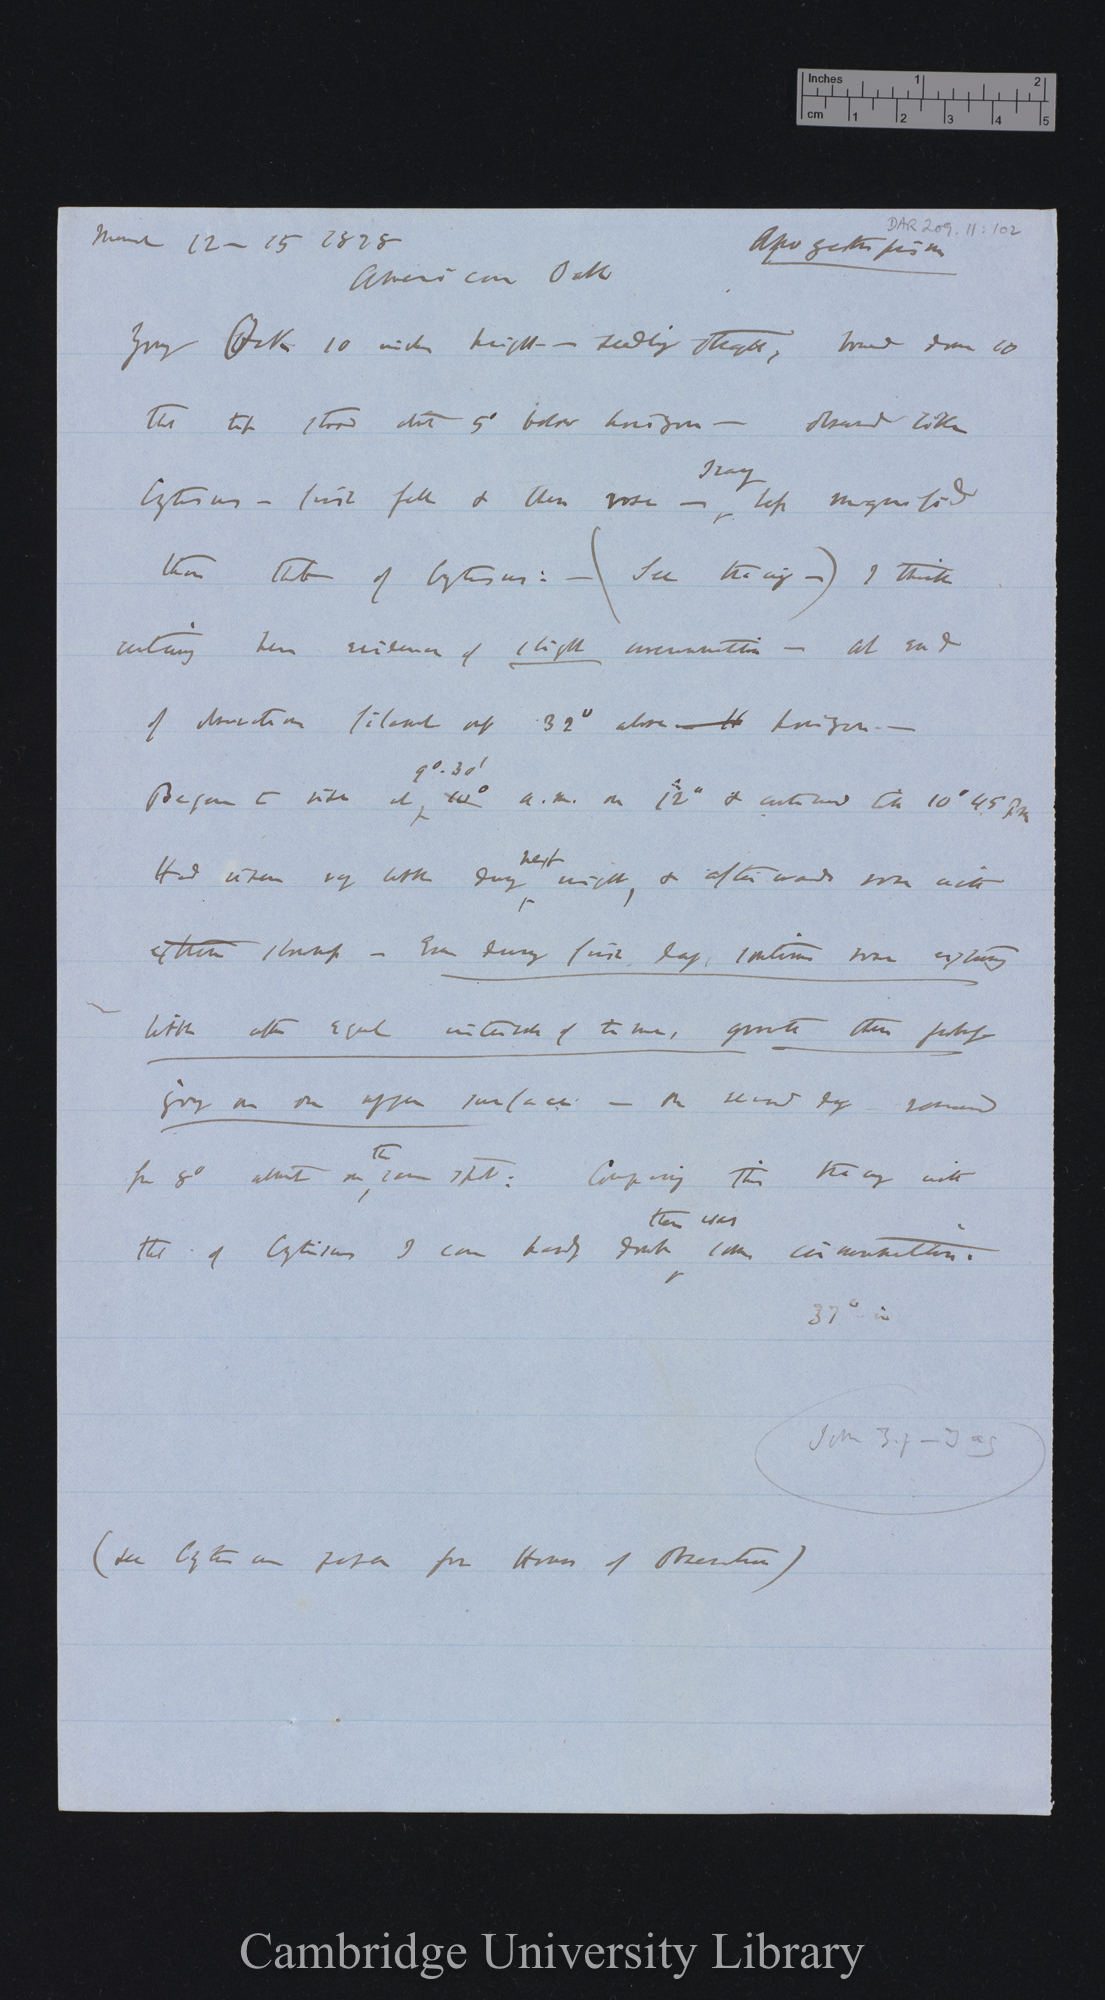 Inches 1 2
cm 1 2 3 4 5
DAR 209.11:102
March 12-15 1878
Apogeotropism
American Oak
Young Oak 10 inches height — seedling, bound down so
that tip stood about 5° below horizon — observed like
Cytisus — first fell & then rose — tip magnified
than that of Cytisus: — (See tracing —) I think
certainly here evidence of slight circumnutation — at end
of observation filament up 32° above horizon —
9°.30'
Began to rise at 10° a.m. on 12th & continued till 10° 45' P.m
next
Had risen very little during night, & afterwards rose with
extreme slowness — Even during first day, sometimes rose
little after equal intervals of time, growth then perhaps
going on on upper surface — On second day remained
the
for 8° almost on same spot: Comparing this tracing with
there was
that of Cytisus I can hardly doubt some circumnutation.
37° in
(see Cytisus paper for Hours of Observation)
Cambridge University Library